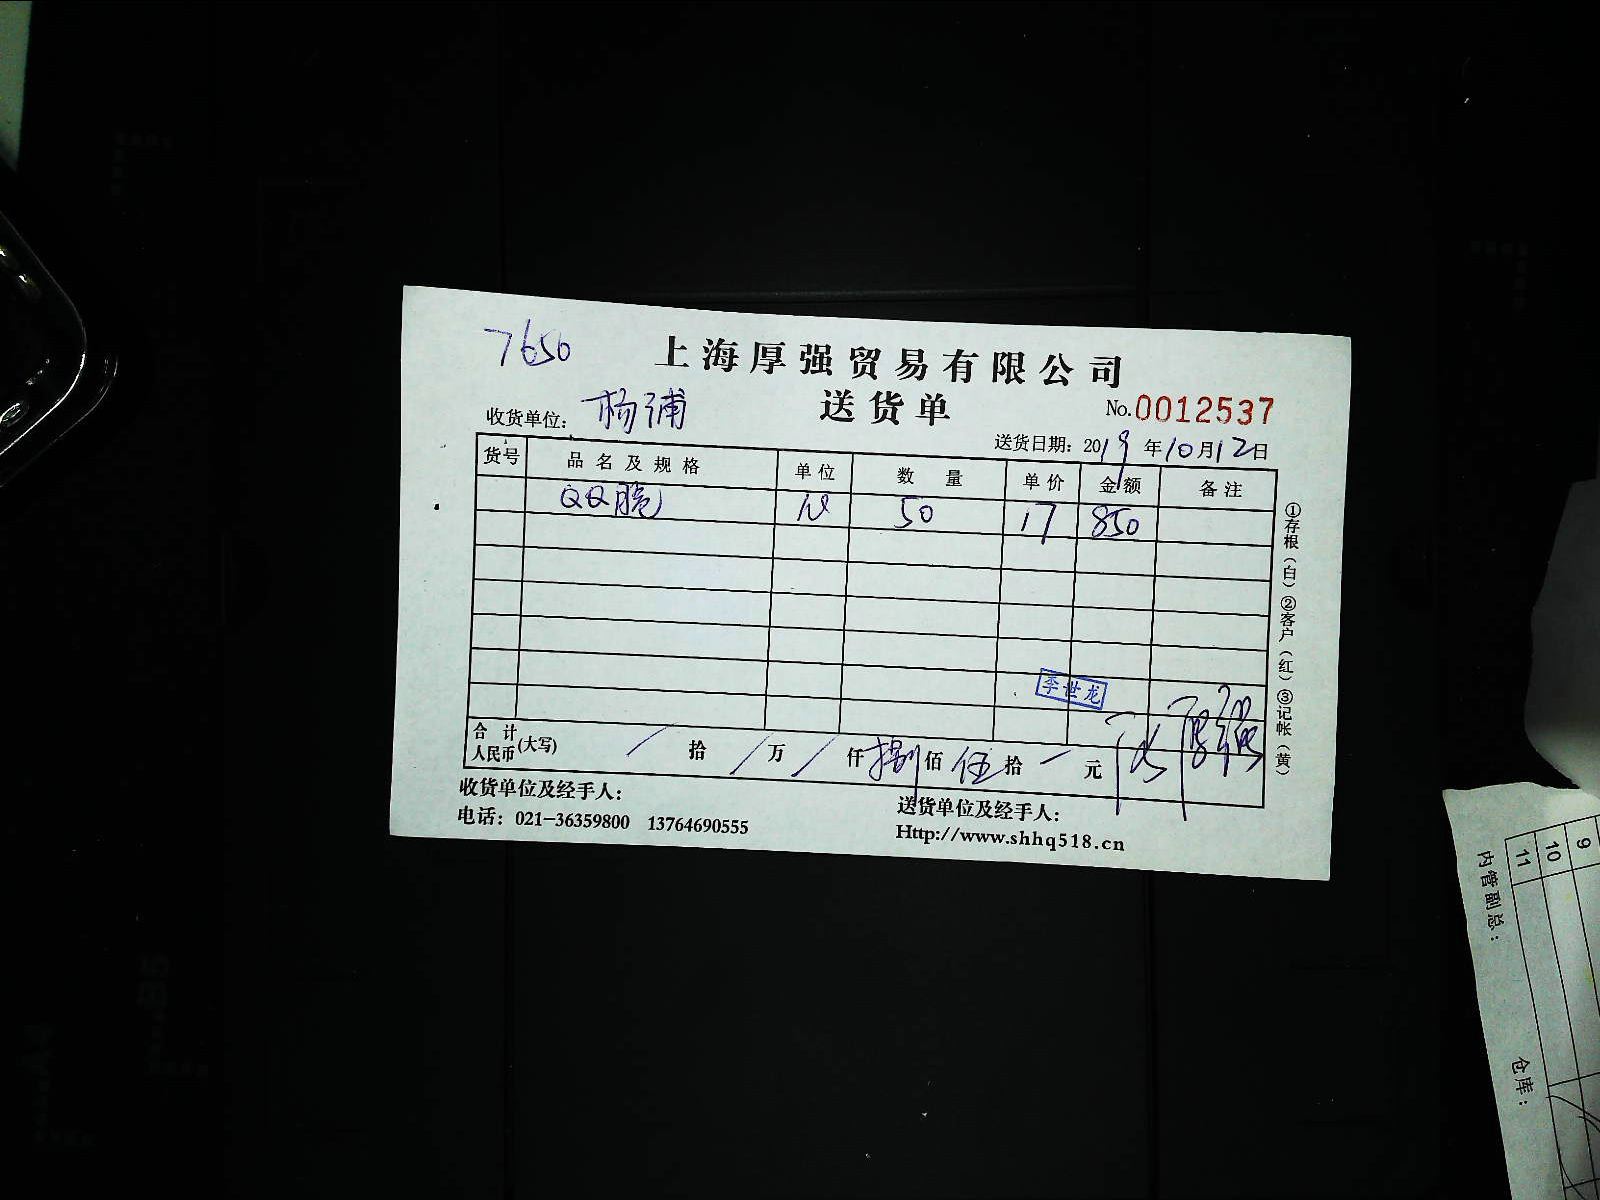 7650
上海厚强贸易有限公司
送货单
No.0012537
收货单位: 杨浦
送货日期: 2019年10月12日
货号 品名及规格 单位 数量 单价 金额 备注
QQ脆 50 17 850
李世龙
合计人民币(大写) / 拾 / 万 / 仟 捌 佰 伍 拾 一 元
收货单位及经手人:
送货单位及经手人:
电话: 021-36359800 13764690555
Http://www.shhq518.cn
①存根(白)②客户(红)③记帐(黄)
9
10
11
内管副总:
仓库: